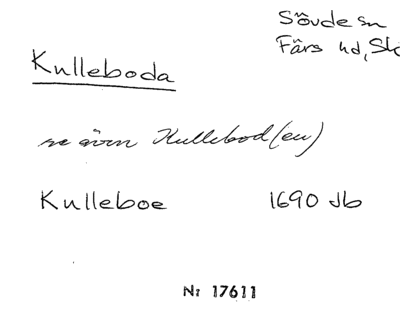 Sövde sn
Färs hd, Sk
Kulleboda
se även Kullebod(en)
Kulleboe 1690 Jb
Nr 17611